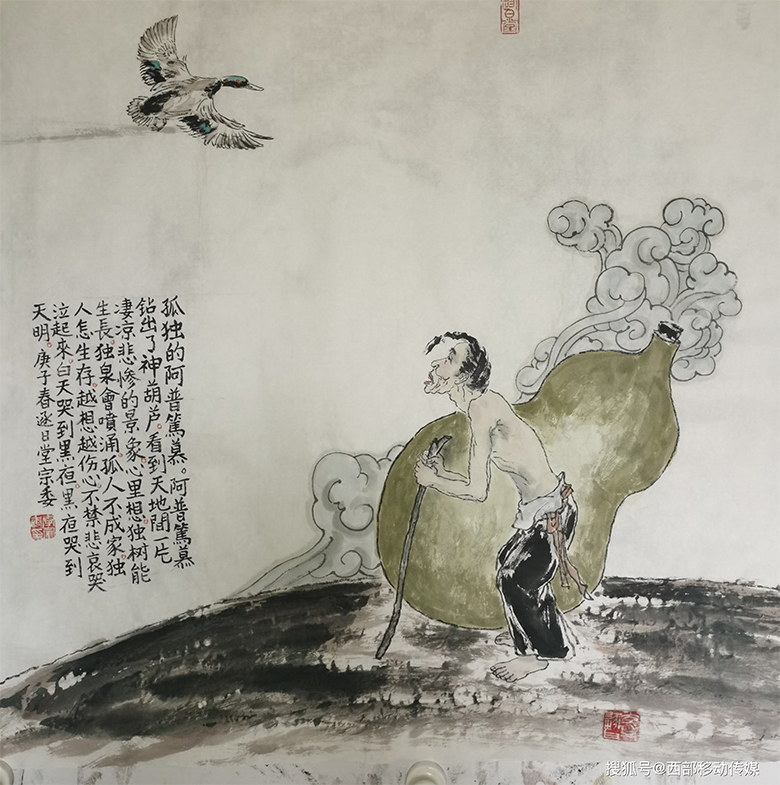 孤独的阿普篤慕。阿普篤慕
钻出了神葫芦。看到天地間一片
淒凉悲惨的景象。心里想独树能
生長。独泉會噴涌。孤人不成家。独
人怎生存。越想越伤心不禁悲哀哭
泣起來。白天哭到黑夜。黑夜哭到
天明。庚子春逐日堂宗委
搜狐号@西部移动传媒